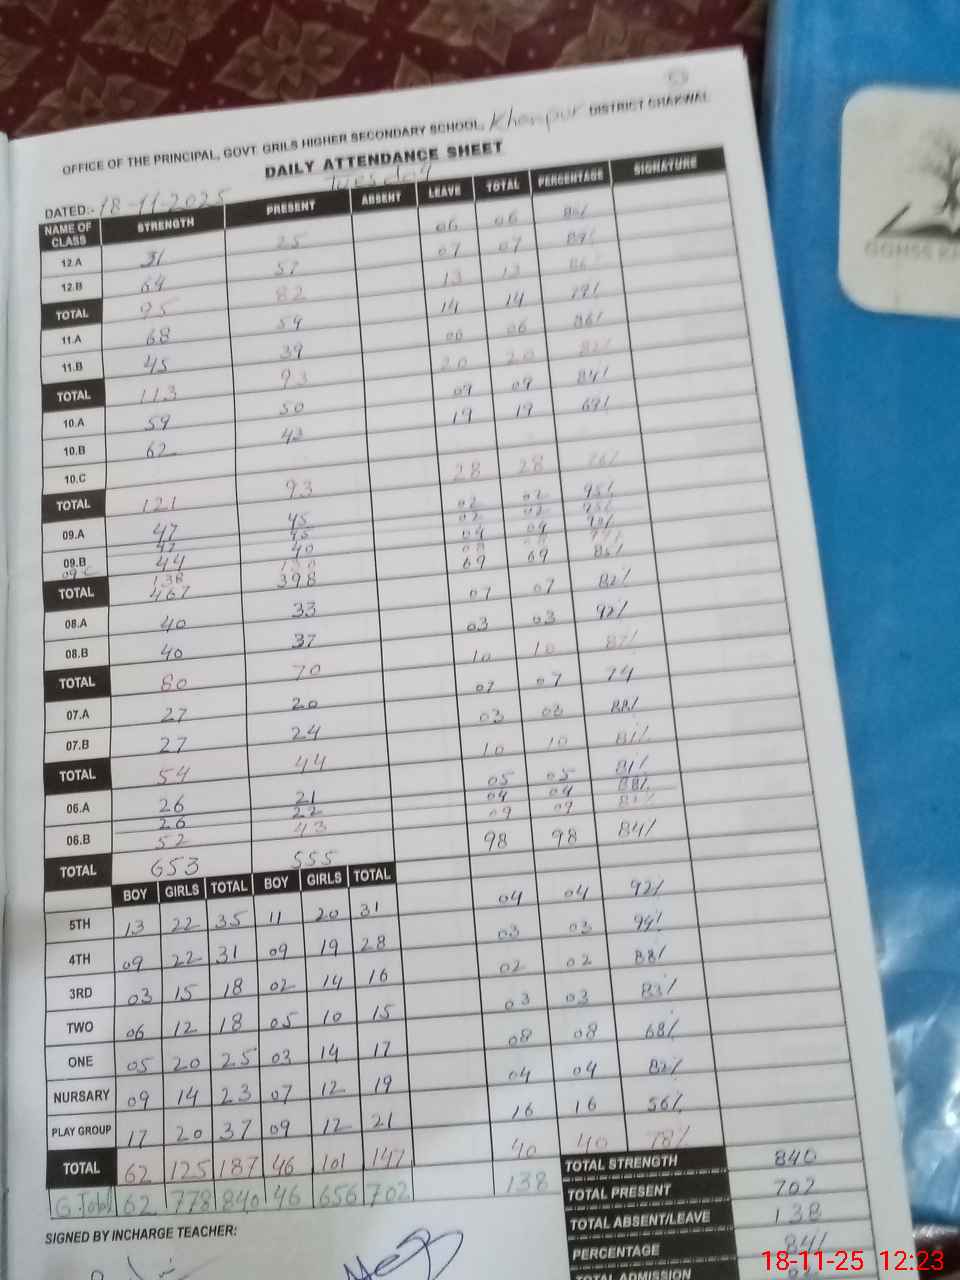 OFFICE OF THE PRINCIPAL, GOVT. GRILS HIGHER SECONDARY SCHOOL, Khanpur DISTRICT CHAKWAL
DAILY ATTENDANCE SHEET
DATED:- 18-11-2025 Tuesday
NAME OF CLASS STRENGTH PRESENT ABSENT LEAVE TOTAL PERCENTAGE SIGNATURE
12.A 31 25 06 06
12.B 64 57 07 07 89%
TOTAL 95 82 13 13
11.A 68 54 14 14
11.B 45 39 06 06 86%
TOTAL 113 93 20 20 82%
10.A 59 50 09 09 84%
10.B 62 43 19 19 69%
10.C
TOTAL 121 93 28 28 76%
09.A 47 45 02 02 95%
47 45 02 02 95%
09.B 44 40 04 04
09-C 138 130 08 08
TOTAL 467 398 69 69
08.A 40 33 07 07 82%
08.B 40 37 03 03 92%
TOTAL 80 70 10 10 87%
07.A 27 20 07 07 74
07.B 27 24 03 03 88%
TOTAL 54 44 10 10 81%
06.A 26 21 05 05 81%
26 22 04 04 88%
06.B 52 43 09 09
TOTAL 653 555 98 98 84%
BOY GIRLS TOTAL BOY GIRLS TOTAL
5TH 13 22 35 11 20 31 04 04 92%
4TH 09 22 31 09 19 28 03 03
3RD 03 15 18 02 14 16 02 02 88%
TWO 06 12 18 05 10 15 03 03 83%
ONE 05 20 25 03 14 17 08 08 68%
NURSARY 09 14 23 07 12 19 04 04 82%
PLAY GROUP 17 20 37 09 12 21 16 16 56%
TOTAL 62 125 187 46 101 147 40 40 78%
G.Total 62 778 840 46 656 702 138
TOTAL STRENGTH 840
TOTAL PRESENT 702
TOTAL ABSENT/LEAVE 138
PERCENTAGE 84%
TOTAL ADMISSION
SIGNED BY INCHARGE TEACHER:
GGHSS
18-11-25 12:23